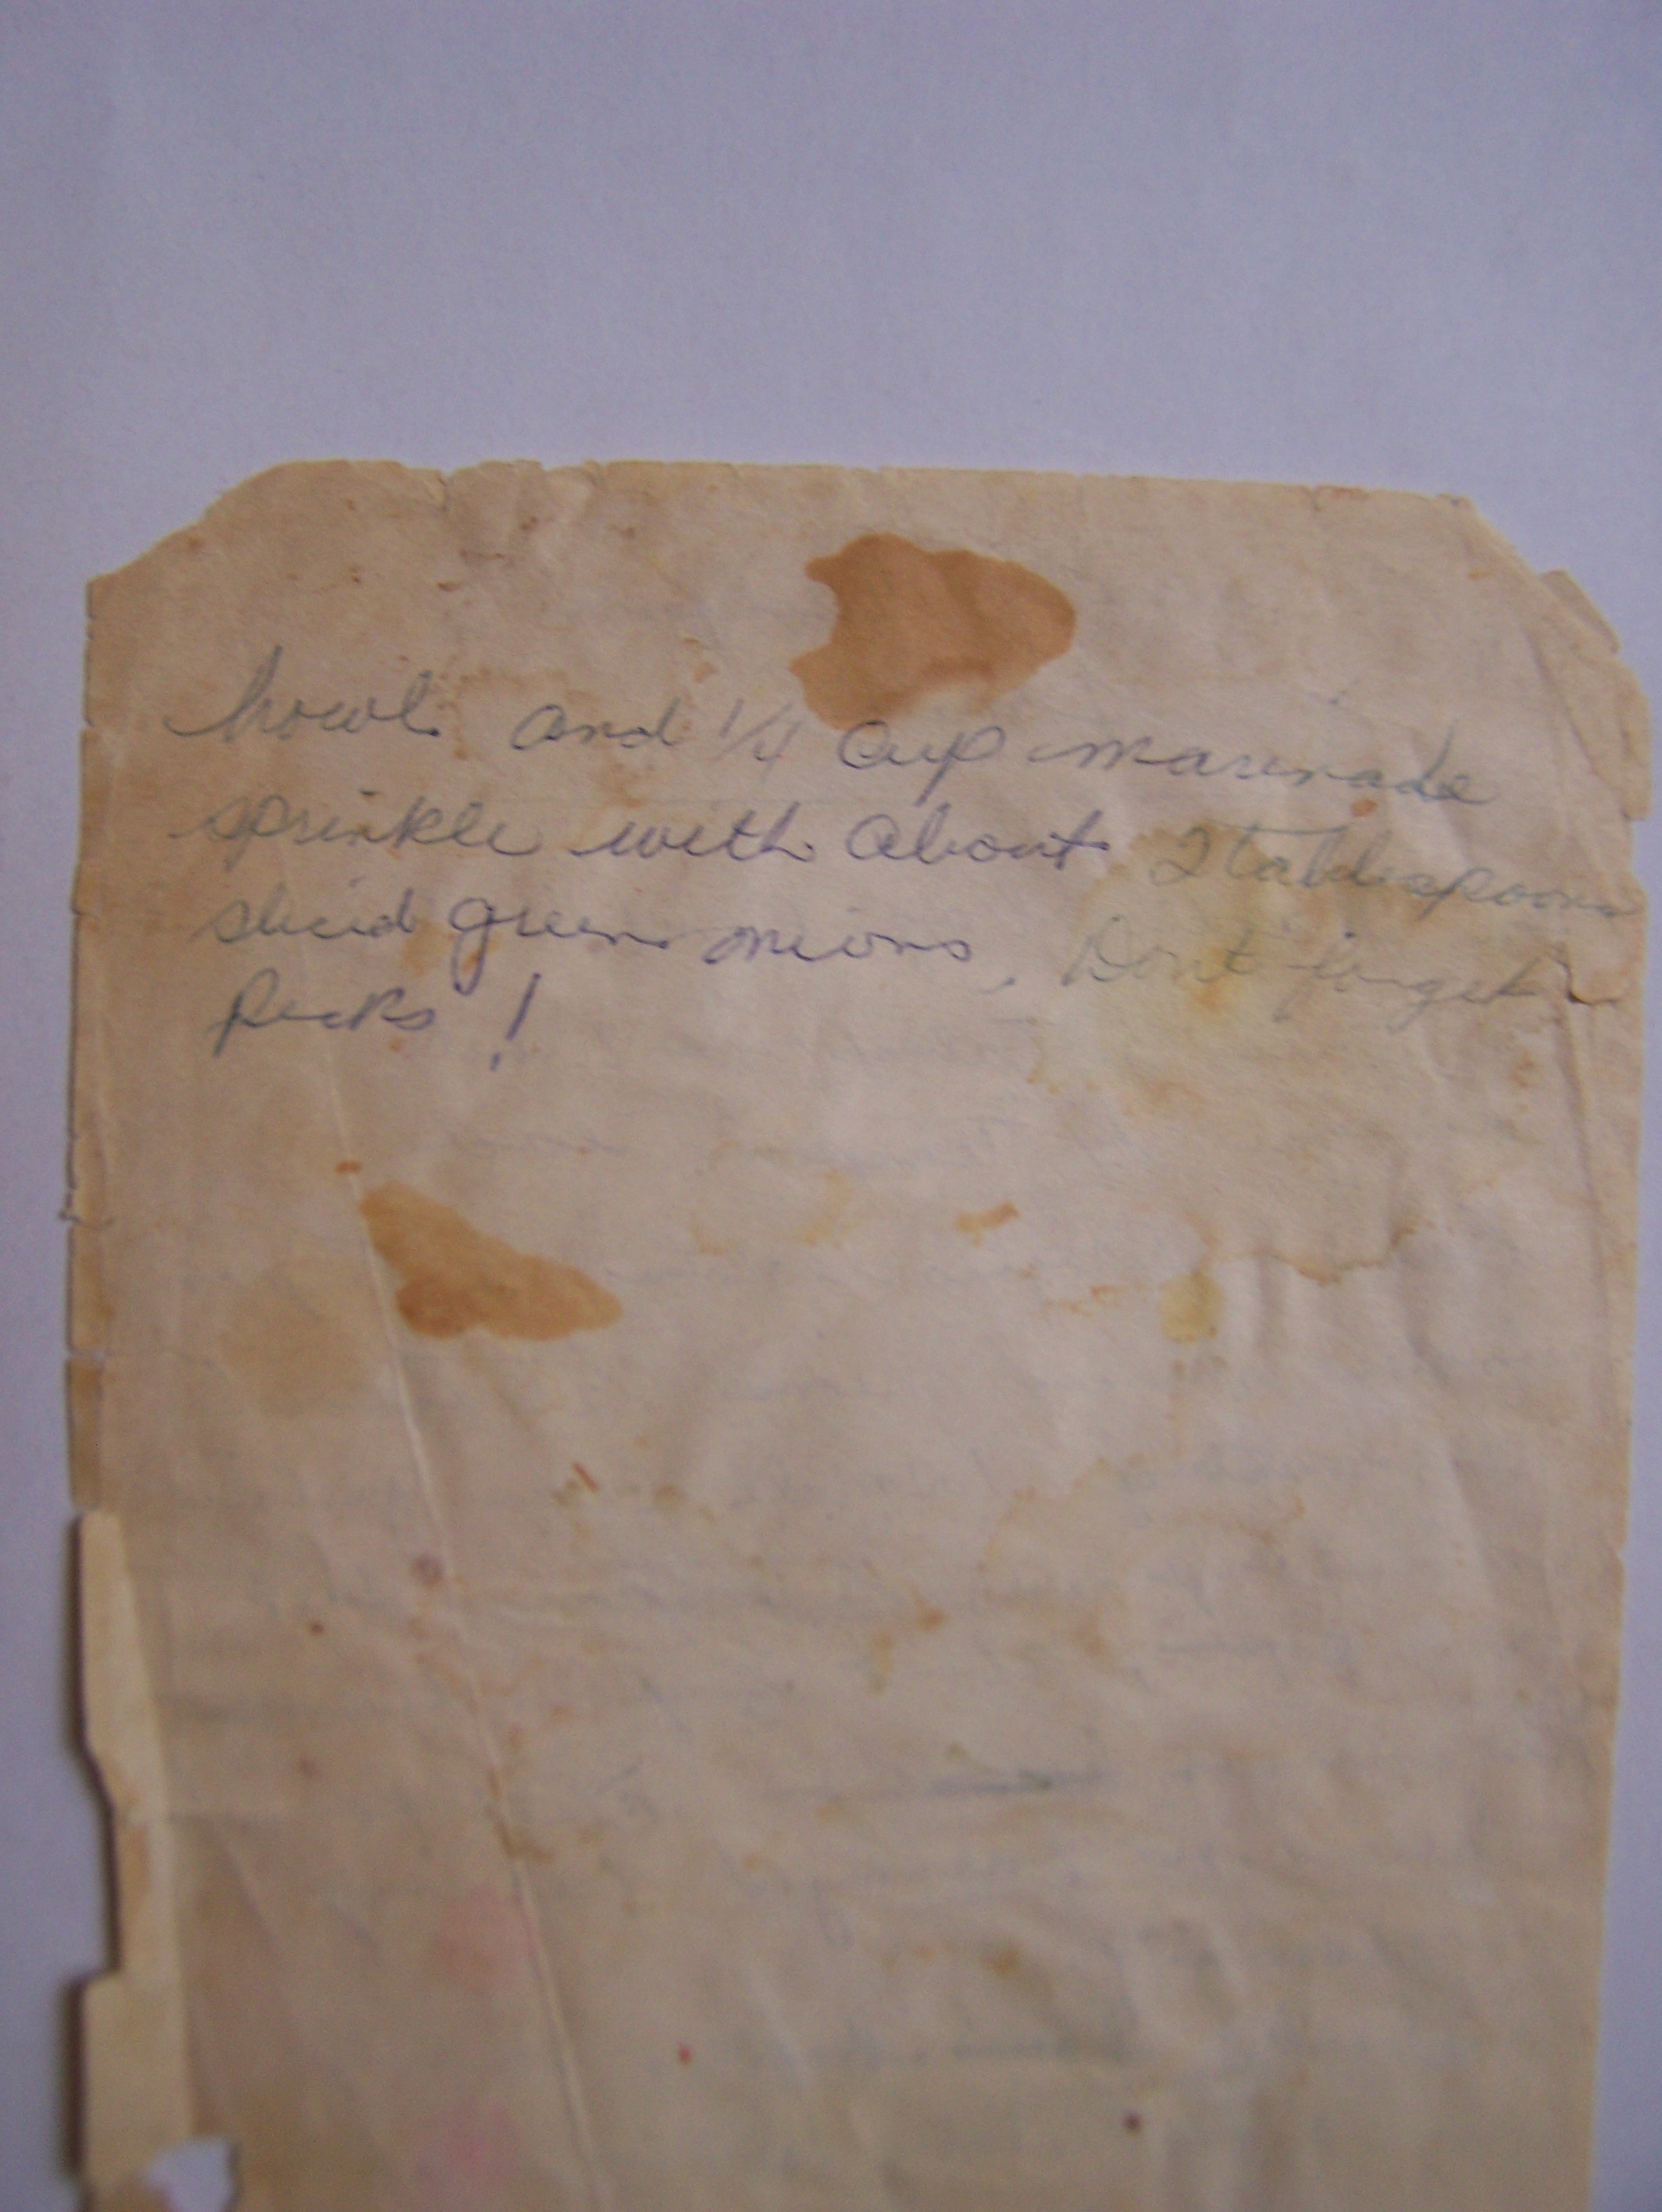 bowl and 1/4 cup marinade
sprinkle with about 2 tablespoons
sliced green onions. Dont forget
Picks!